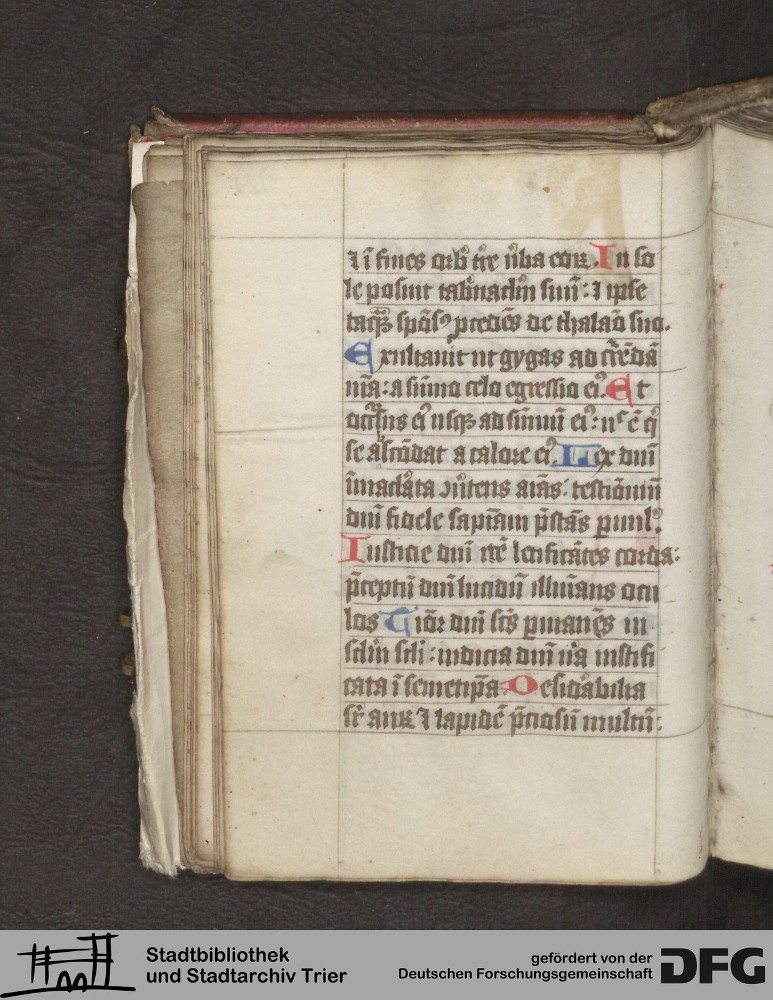 ⁊ ī fines orbꝰ t̄re ūba eoꝝ. In so
le posuit tab̄nacl̄m suū: ⁊ ip̄se
tāqꝫ spōsꝰ ꝓcedēs de thalaō suo.
Exultauit ut gygas ad c̄rrēdā
uiā: a sūmo celo egressio eiꝰ. Et
occ̄rsus eiꝰ usqꝫ ad sūmū eiꝰ: n̄ ē qͥ
se abscōdat a calore eiꝰ. Lex dn̄i
īmaclāta ↄuertens aīas: testiōiuū
dn̄i fidele sapīam p̄stās ꝑuulꝭ.
Iusticie dn̄i r̄cte letificātes corda:
p̄ceptū dn̄i lucidū illūians ocu
los Tiōr dn̄i sc̄s ꝑmanēs in
sc̄lm sc̄li: iudicia dn̄i u̇a iustifi
cata ī semetip̄a Desid̄abilia
sr̄ auꝝ ⁊ lapidē p̄ciosū multū:
Stadtbibliothek
und Stadtarchiv Trier
gefördert von der
Deutschen Forschungsgemeinschaft
DFG